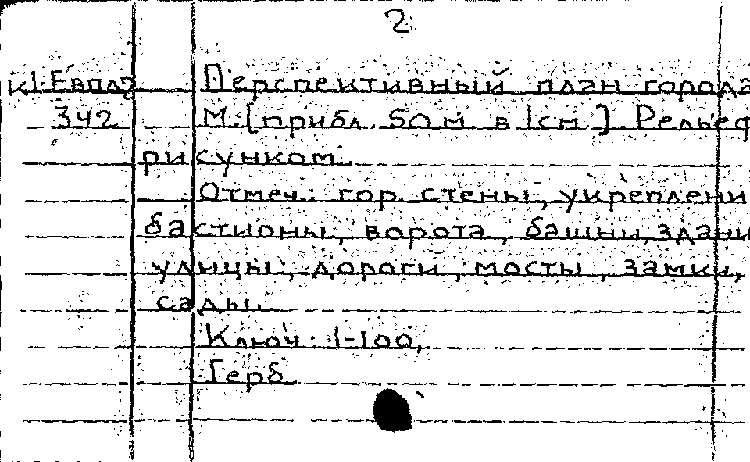 2
К1-Евпл2 Перспективный план города
342 М. [прибл. 50м в 1см] Рельеф
рисунком.
Отмеч.: гор. стены, укреплени
бастионы, ворота, башни, здани
улицы, дороги, мосты, замки,
сады.
Ключ: 1-100,
Герб.